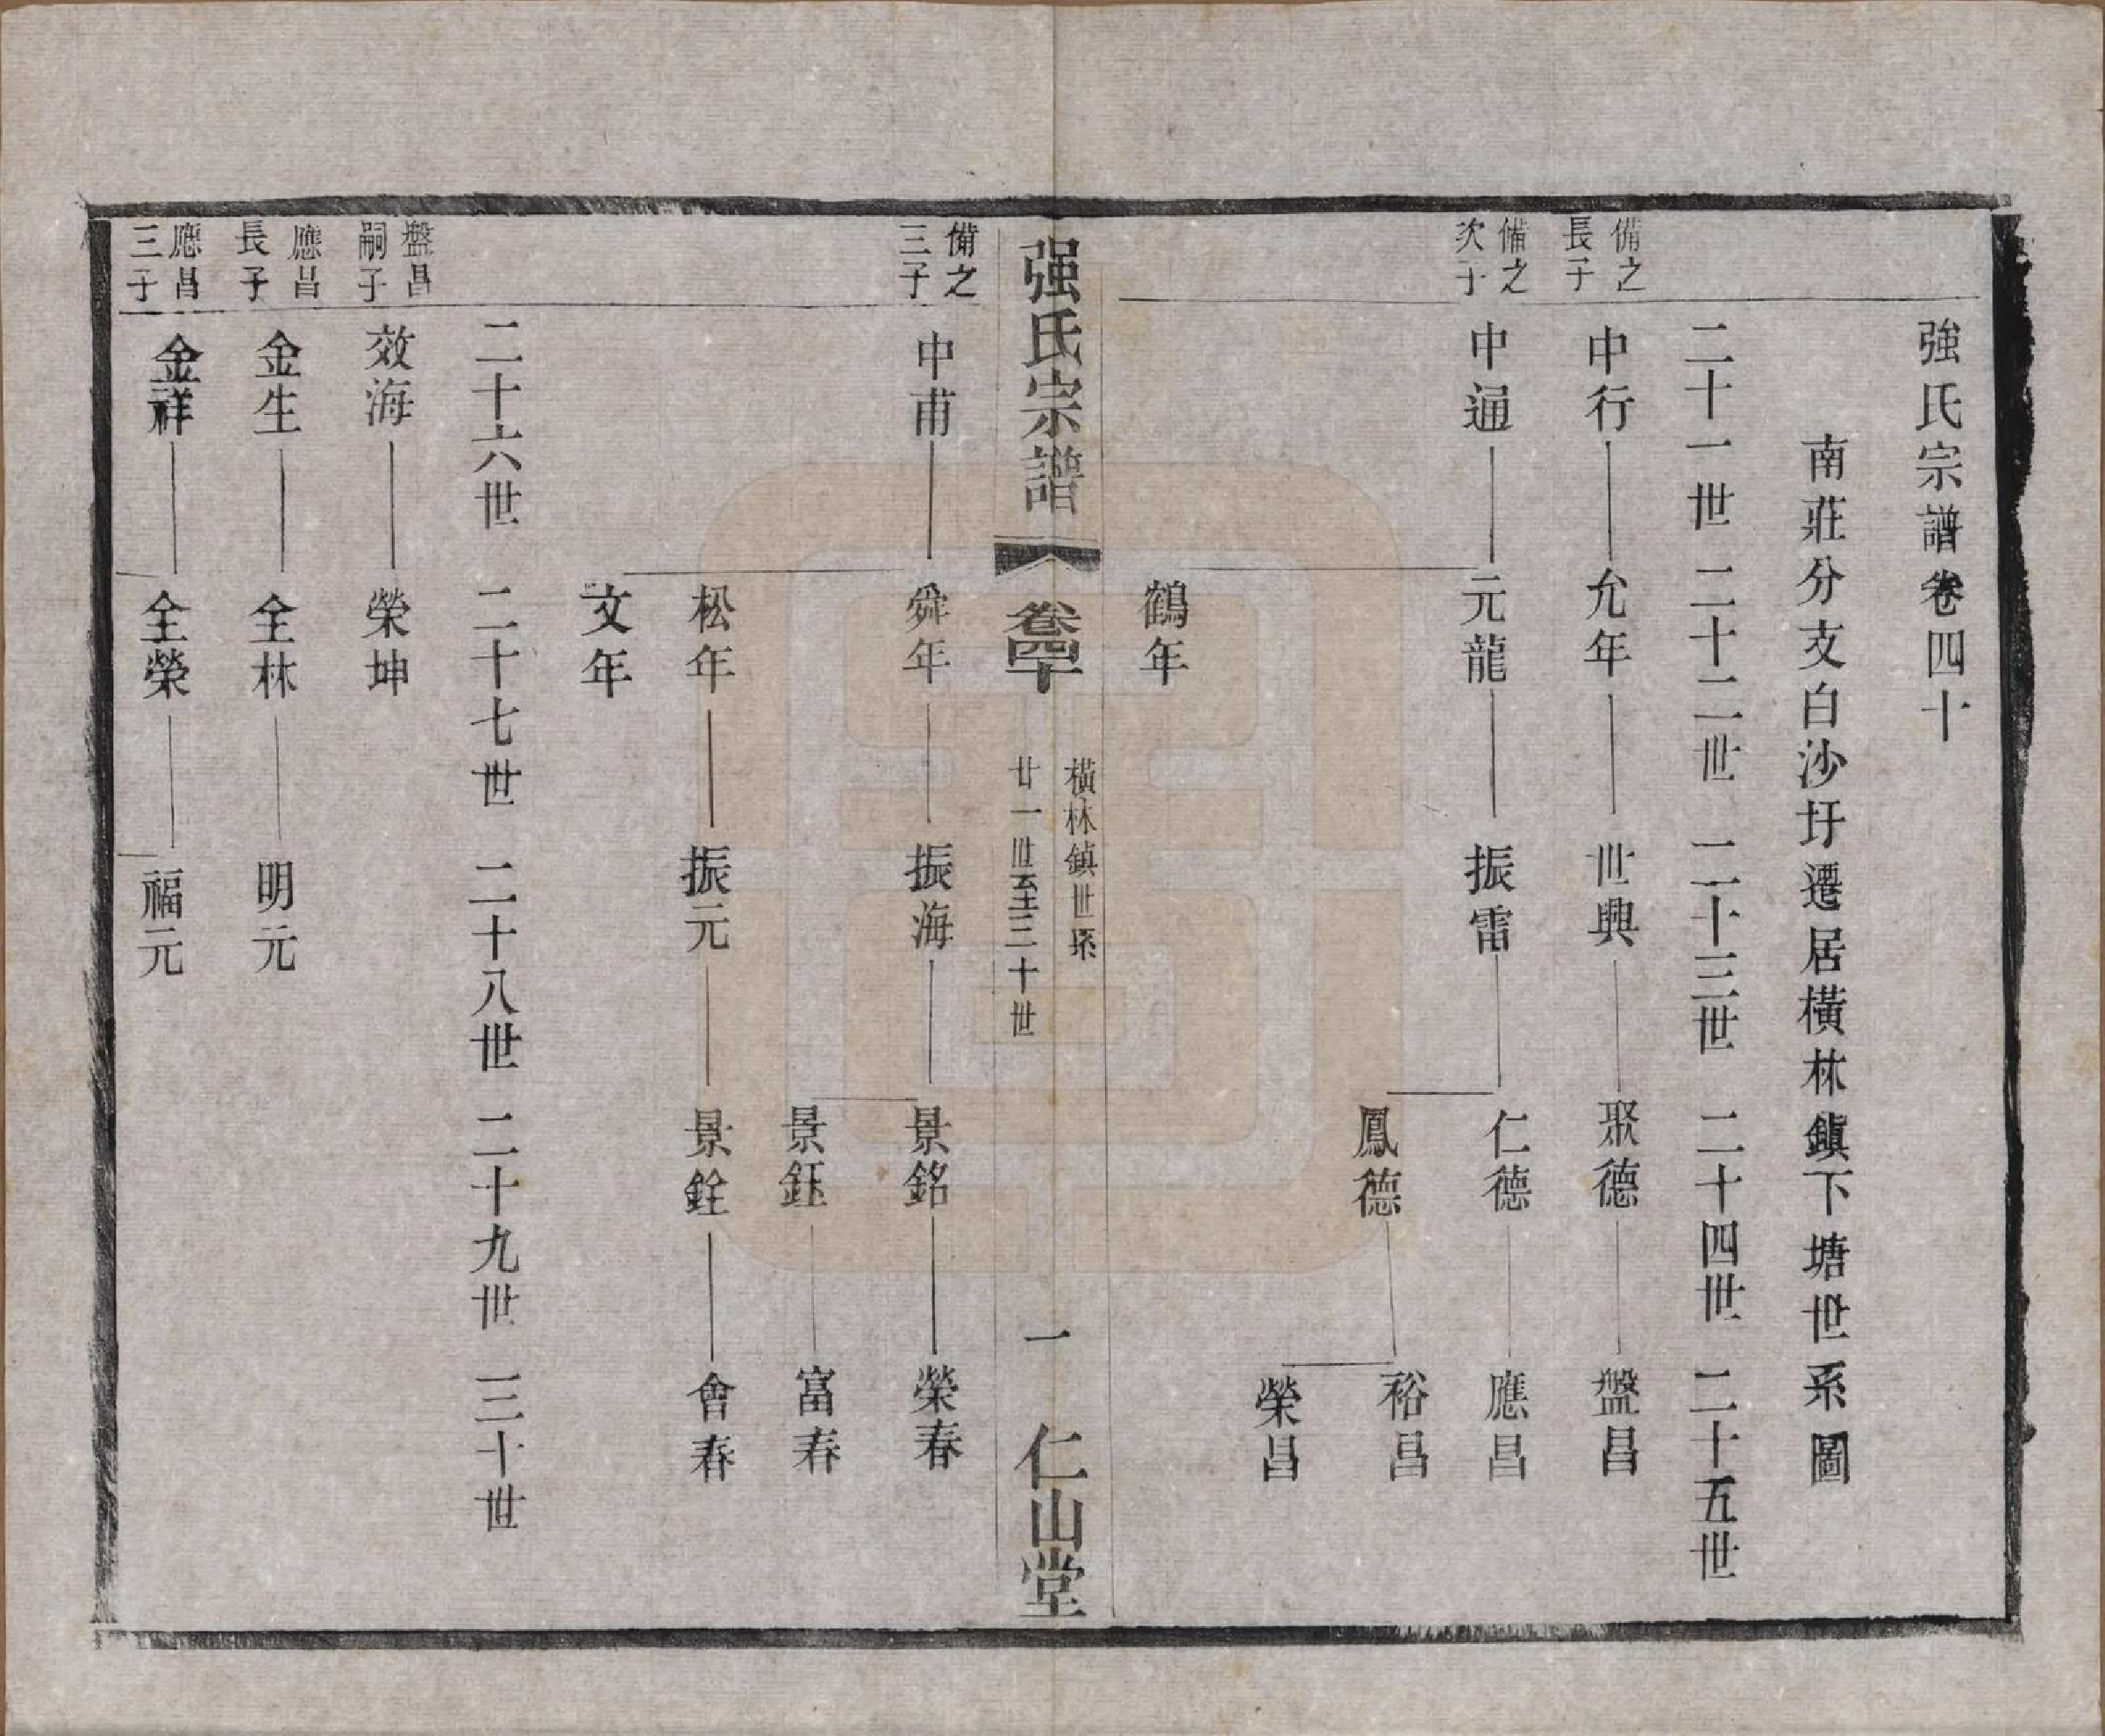 強氏宗譜卷四十
南莊分支白沙圩遷居橫林鎮下塘世系圖
二十一世 二十二世 二十三世 二十四世 二十五世
備之長子 中行 允年 世興 聚德 盤昌
備之次子 中通 元龍 振雷 仁德 應昌
鳳德 裕昌
榮昌
鶴年
强氏宗譜 卷四十 橫林鎮世系 廿一世至三十世 一 仁山堂
備之三子 中甫 舜年 振海 景銘 榮春
景鈺 富春
松年 振元 景銓 會春
文年
二十六世 二十七世 二十八世 二十九世 三十世
盤昌嗣子 效海 榮坤
應昌長子 金生 全林 明元
應昌三子 金祥 全榮 福元